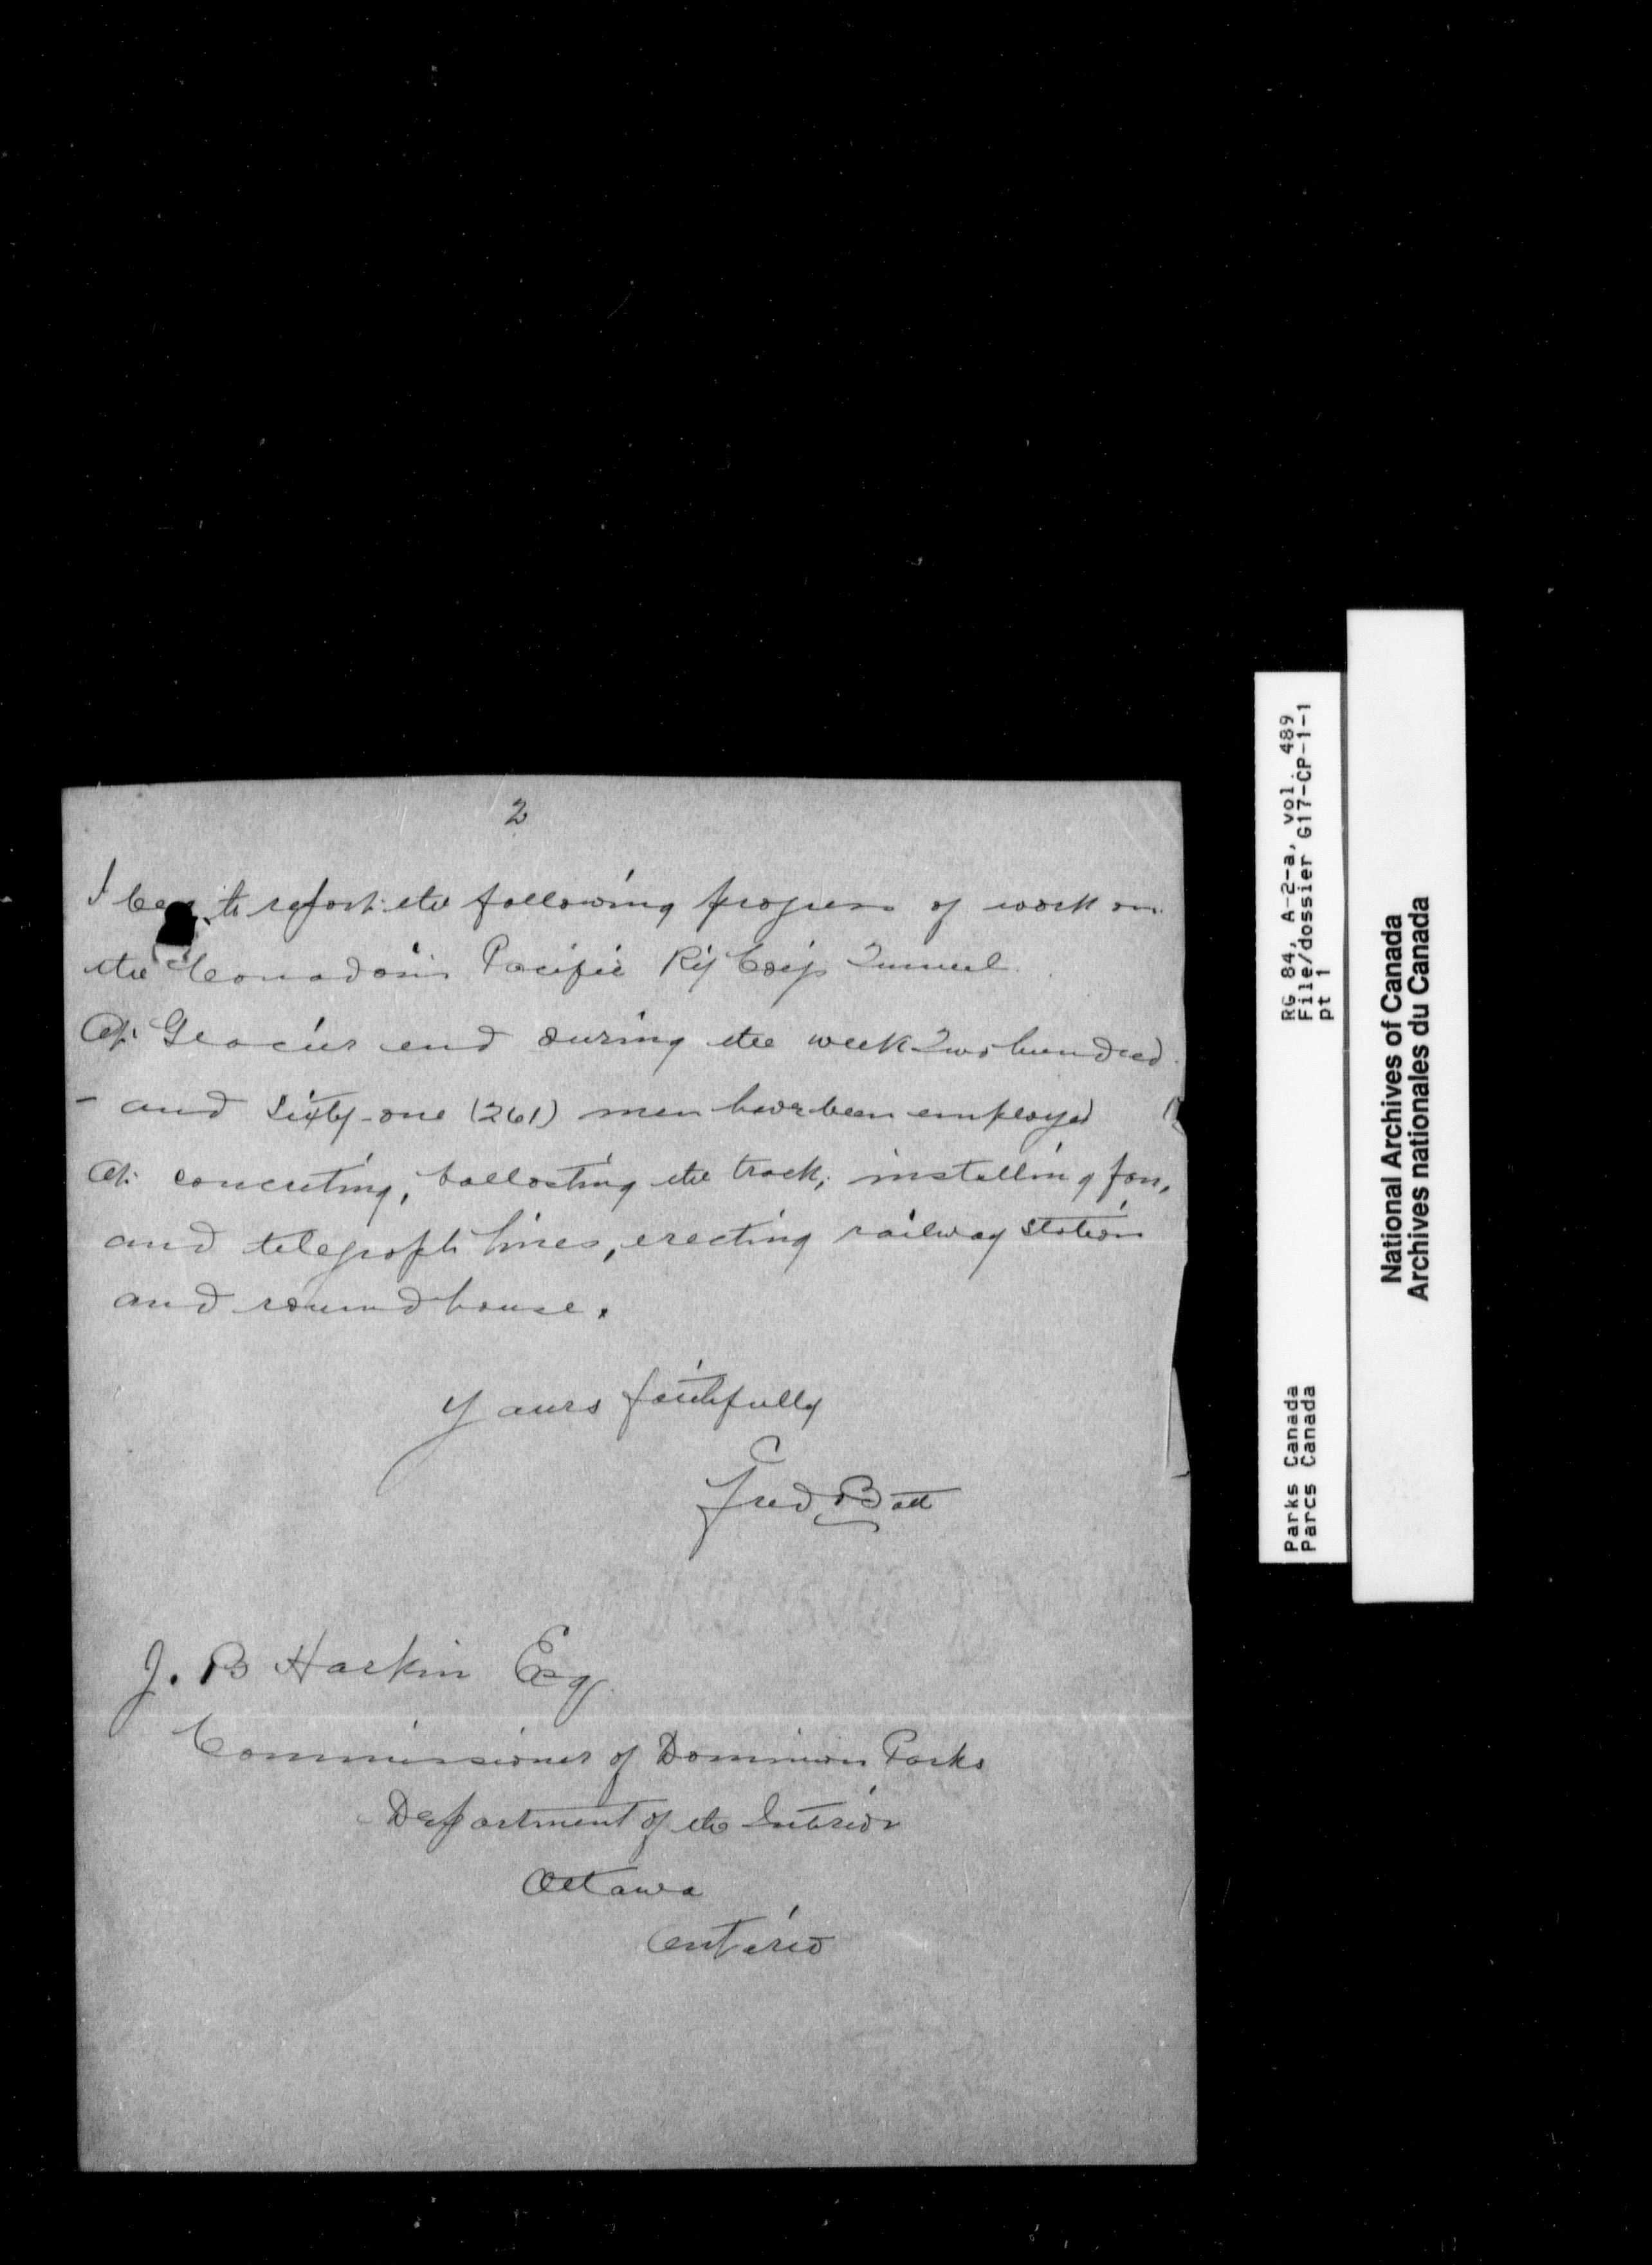 2
I beg to report the following progress of work on
the Canadian Pacific Ry Coys Tunnel.
At Glacier end during the week Two hundred
- and Sixty-one (261) men have been employed
At concreting, ballasting the track, installing fan,
and telegraph lines, erecting railway station
and roundhouse.
Yours faithfully
Fred Batt
J. B Harkin Esq.
Commissioner of Dominion Parks
Department of the Interior
Ottawa
Ontario
RG 84, A-2-a, vol. 489
File/dossier G17-CP-1-1
pt 1
Parks Canada
Parcs Canada
National Archives of Canada
Archives nationales du Canada